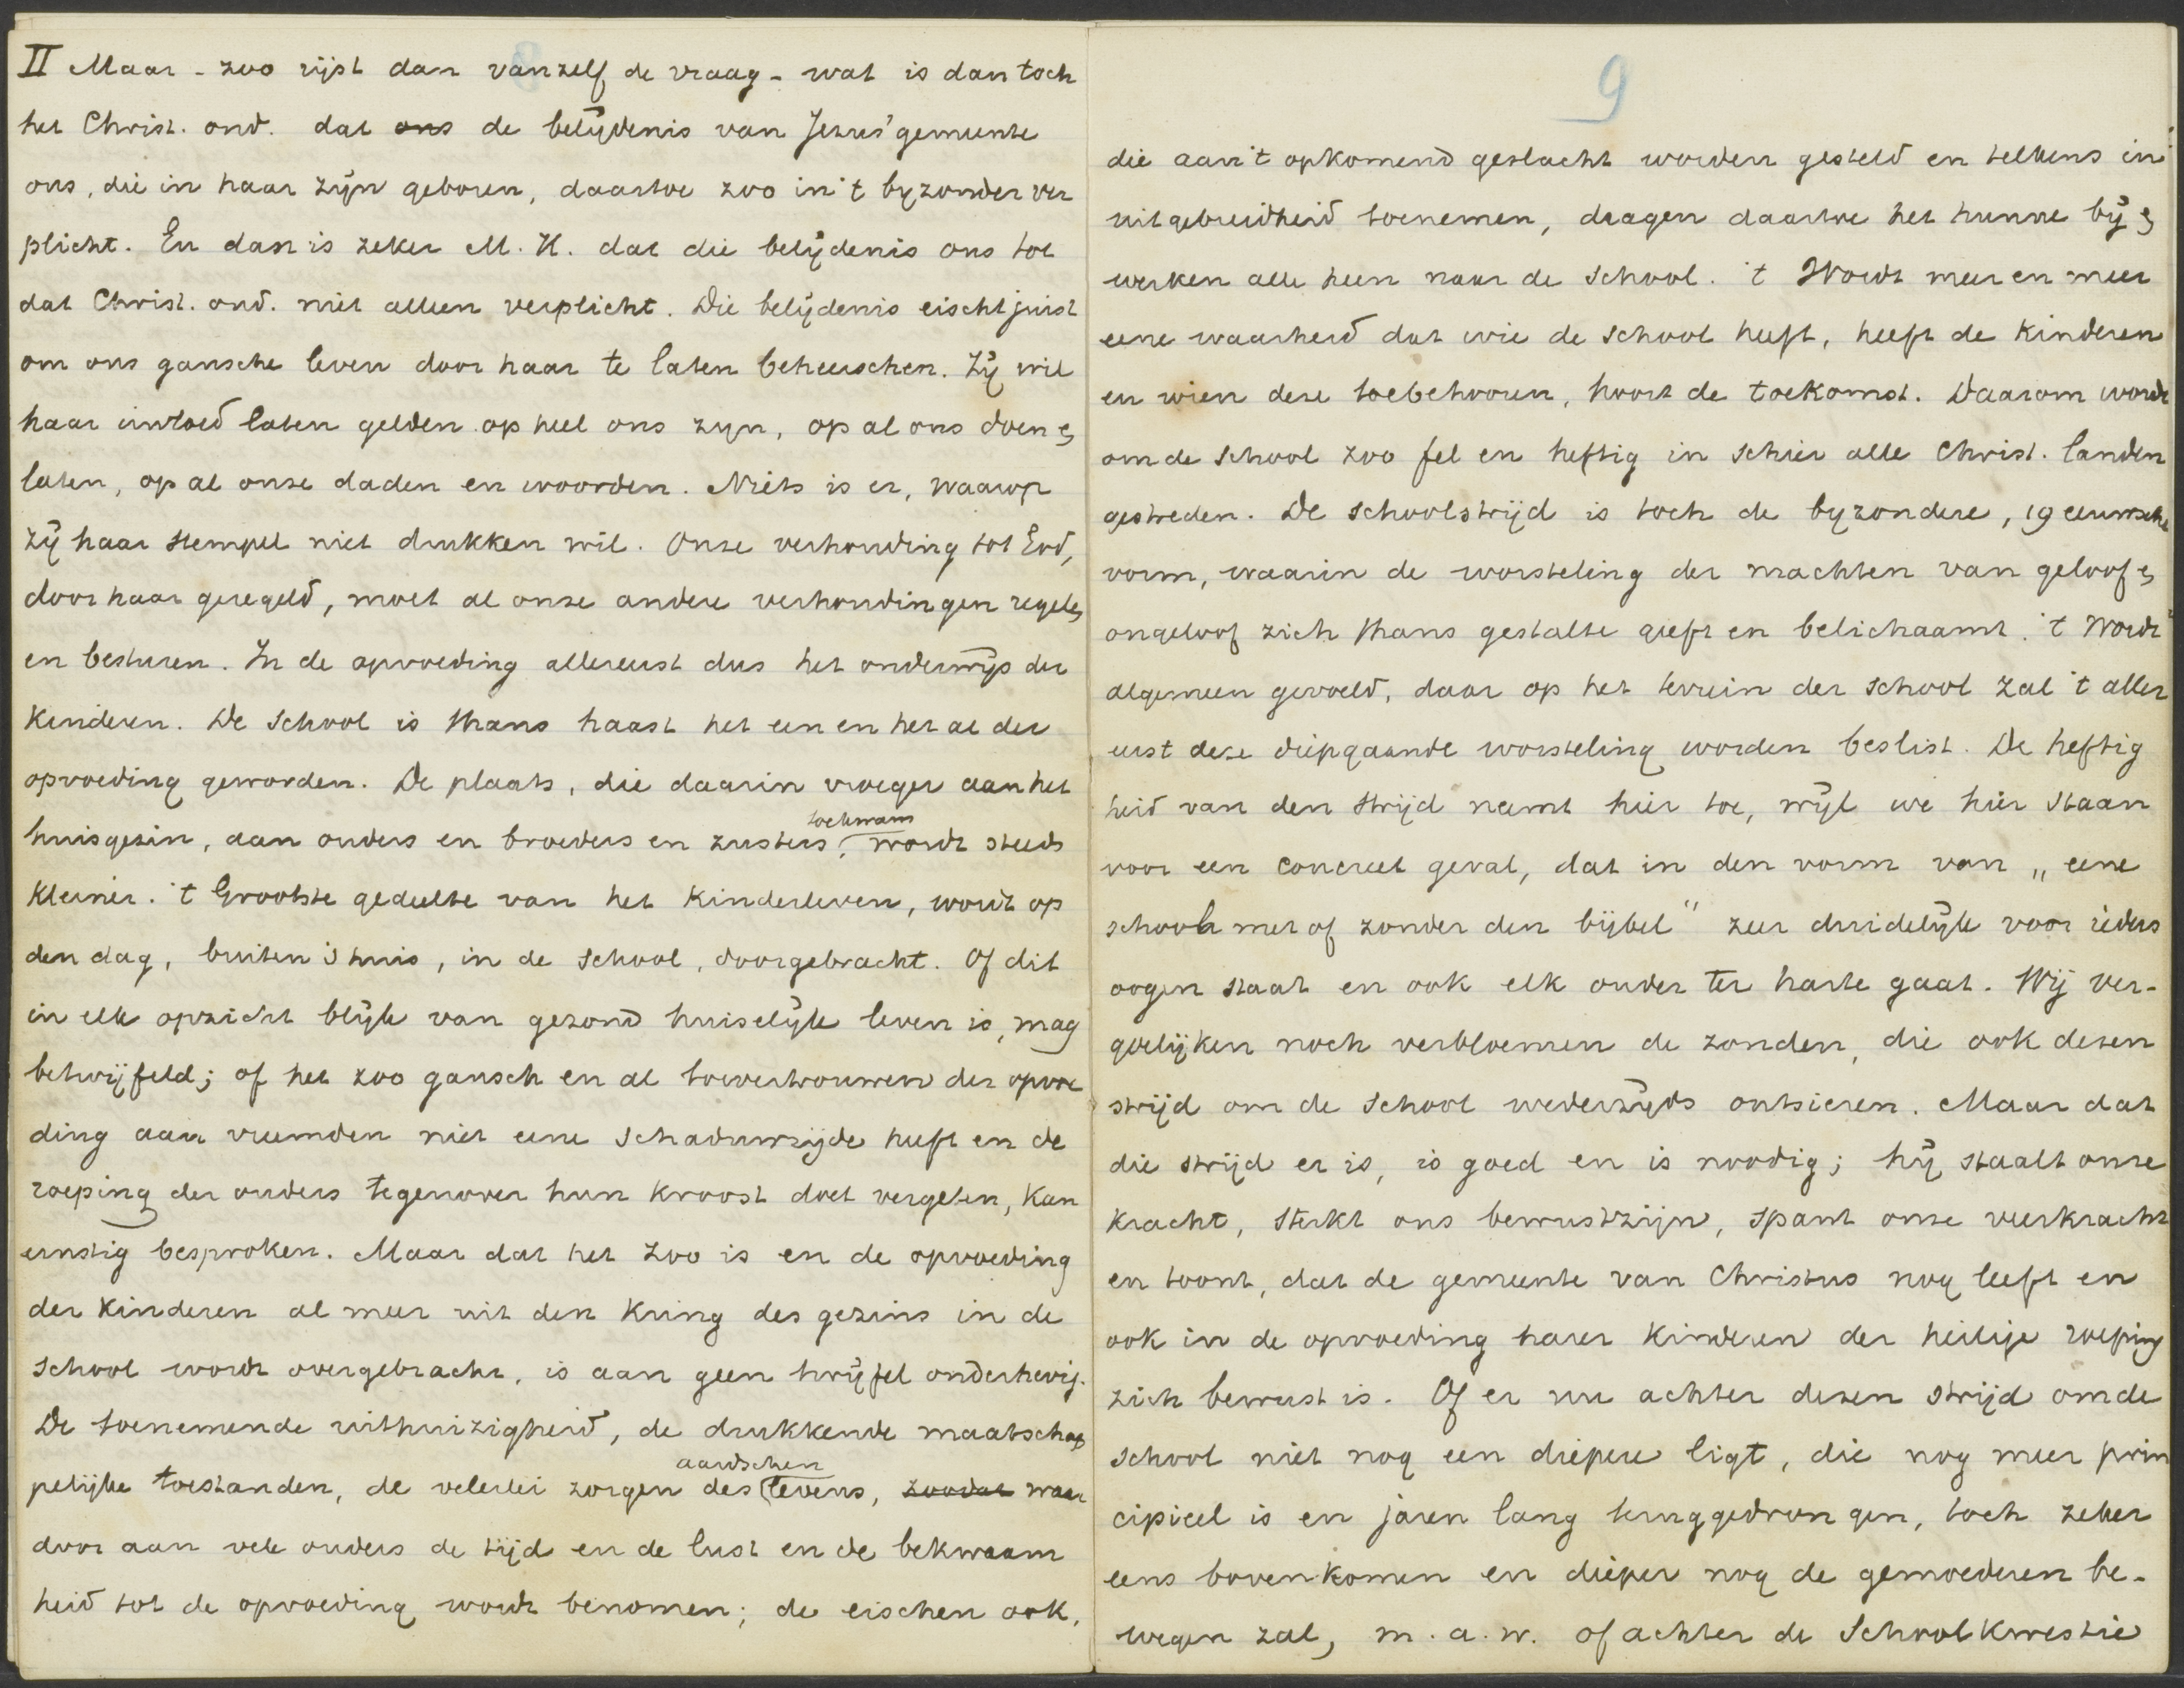 II Maar - zoo rijst dan vanzelf de vraag - wat is dan toch
het Christ. ond. dat ons de belijdenis van Jezus' gemeente
ons, die in haar zijn geboren, daartoe zoo in 't byzonder ver
plicht. En dan is zeker M. H. dat die belijdenis ons tot
dat Christ. ond. niet alleen verplicht. Die belijdenis eischt juist
om ons gansche leven door haar te laten beheerschen. Zij wil
haar invloed laten gelden op heel ons zyn, op al ons doen en
laten, op al onze daden en woorden. Niets is er, waarop
zij haar stempel niet drukken wil. Onze verhouding tot God,
door haar geregeld, moet al onze andere verhoudingen regelen
en besturen. In de opvoeding allereerst dus het onderwijs der
kinderen. De school is thans haast het een en het al der
opvoeding geworden. De plaats, die daarin vroeger aan het
huisgezin, aan ouders en broeders en zusters toekwam, wordt steeds
kleiner. 't Grootste gedeelte van het kinderleven, wordt op
den dag, buiten 's huis, in de school, doorgebracht. Of dit
in elk opzicht blijk van gezond huiselijk leven is, mag
betwijfeld; of het zoo gansch en al toevertrouwen der opvoe
ding aan vreemden niet eene schaduwzijde heeft en de
roeping der ouders tegenover hun kroost doet vergeten, kan
ernstig besproken. Maar dat het zoo is en de opvoeding
der kinderen al meer uit den kring des gezins in de
school wordt overgebracht, is aan geen twijfel onderhevig.
De toenemende uithuizigheid, de drukkende maatschap
pelijke toestanden, de velerlei zorgen des aardschen levens, zoodat waar
door aan vele ouders de tijd en de lust en de bekwaam
heid tot de opvoeding wordt benomen; de eischen ook,
9
die aan 't opkomend geslacht worden gesteld en telkens in
uitgebreidheid toenemen, dragen daartoe het hunne bij en
werken alle heen naar de school. 't Wordt meer en meer
eene waarheid dat wie de school heeft, heeft de kinderen
en wien deze toebehooren, hoort de toekomst. Daarom wordt
om de school zoo fel en heftig in schier alle Christ. landen
gestreden. De schoolstrijd is toch de byzondere, 19 eeuwsche
vorm, waarin de worsteling der machten van geloof en
ongeloof zich thans gestalte geeft en belichaamt. 't Wordt
algemeen gevoeld, daar op het terrein der school zal 't aller
eerst deze diepgaande worsteling worden beslist. De heftig
heid van den strijd neemt hier toe, wijl we hier staan
voor een concreet geval, dat in den vorm van „eene
school met of zonder den bijbel" zeer duidelijk voor ieders
oogen staat en ook elk ouder ter harte gaat. Wij ver-
goelijken noch verbloemen de zonden, die ook dezen
strijd om de school wederzijds ontsieren. Maar dat
die strijd er is, is goed en is noodig; hij staalt onze
kracht, sterkt ons bewustzijn, spant onze veerkracht
en toont, dat de gemeente van Christus nog leeft en
ook in de opvoeding harer kinderen der heilige roeping
zich bewust is. Of er nu achter dezen strijd om de
school niet nog een diepere ligt, die nog meer prin
cipieel is en jaren lang teruggedrongen, toch zeker
eens bovenkomen en dieper nog de gemoederen be-
wegen zal, m.a.w. of achter de Schoolkwestie